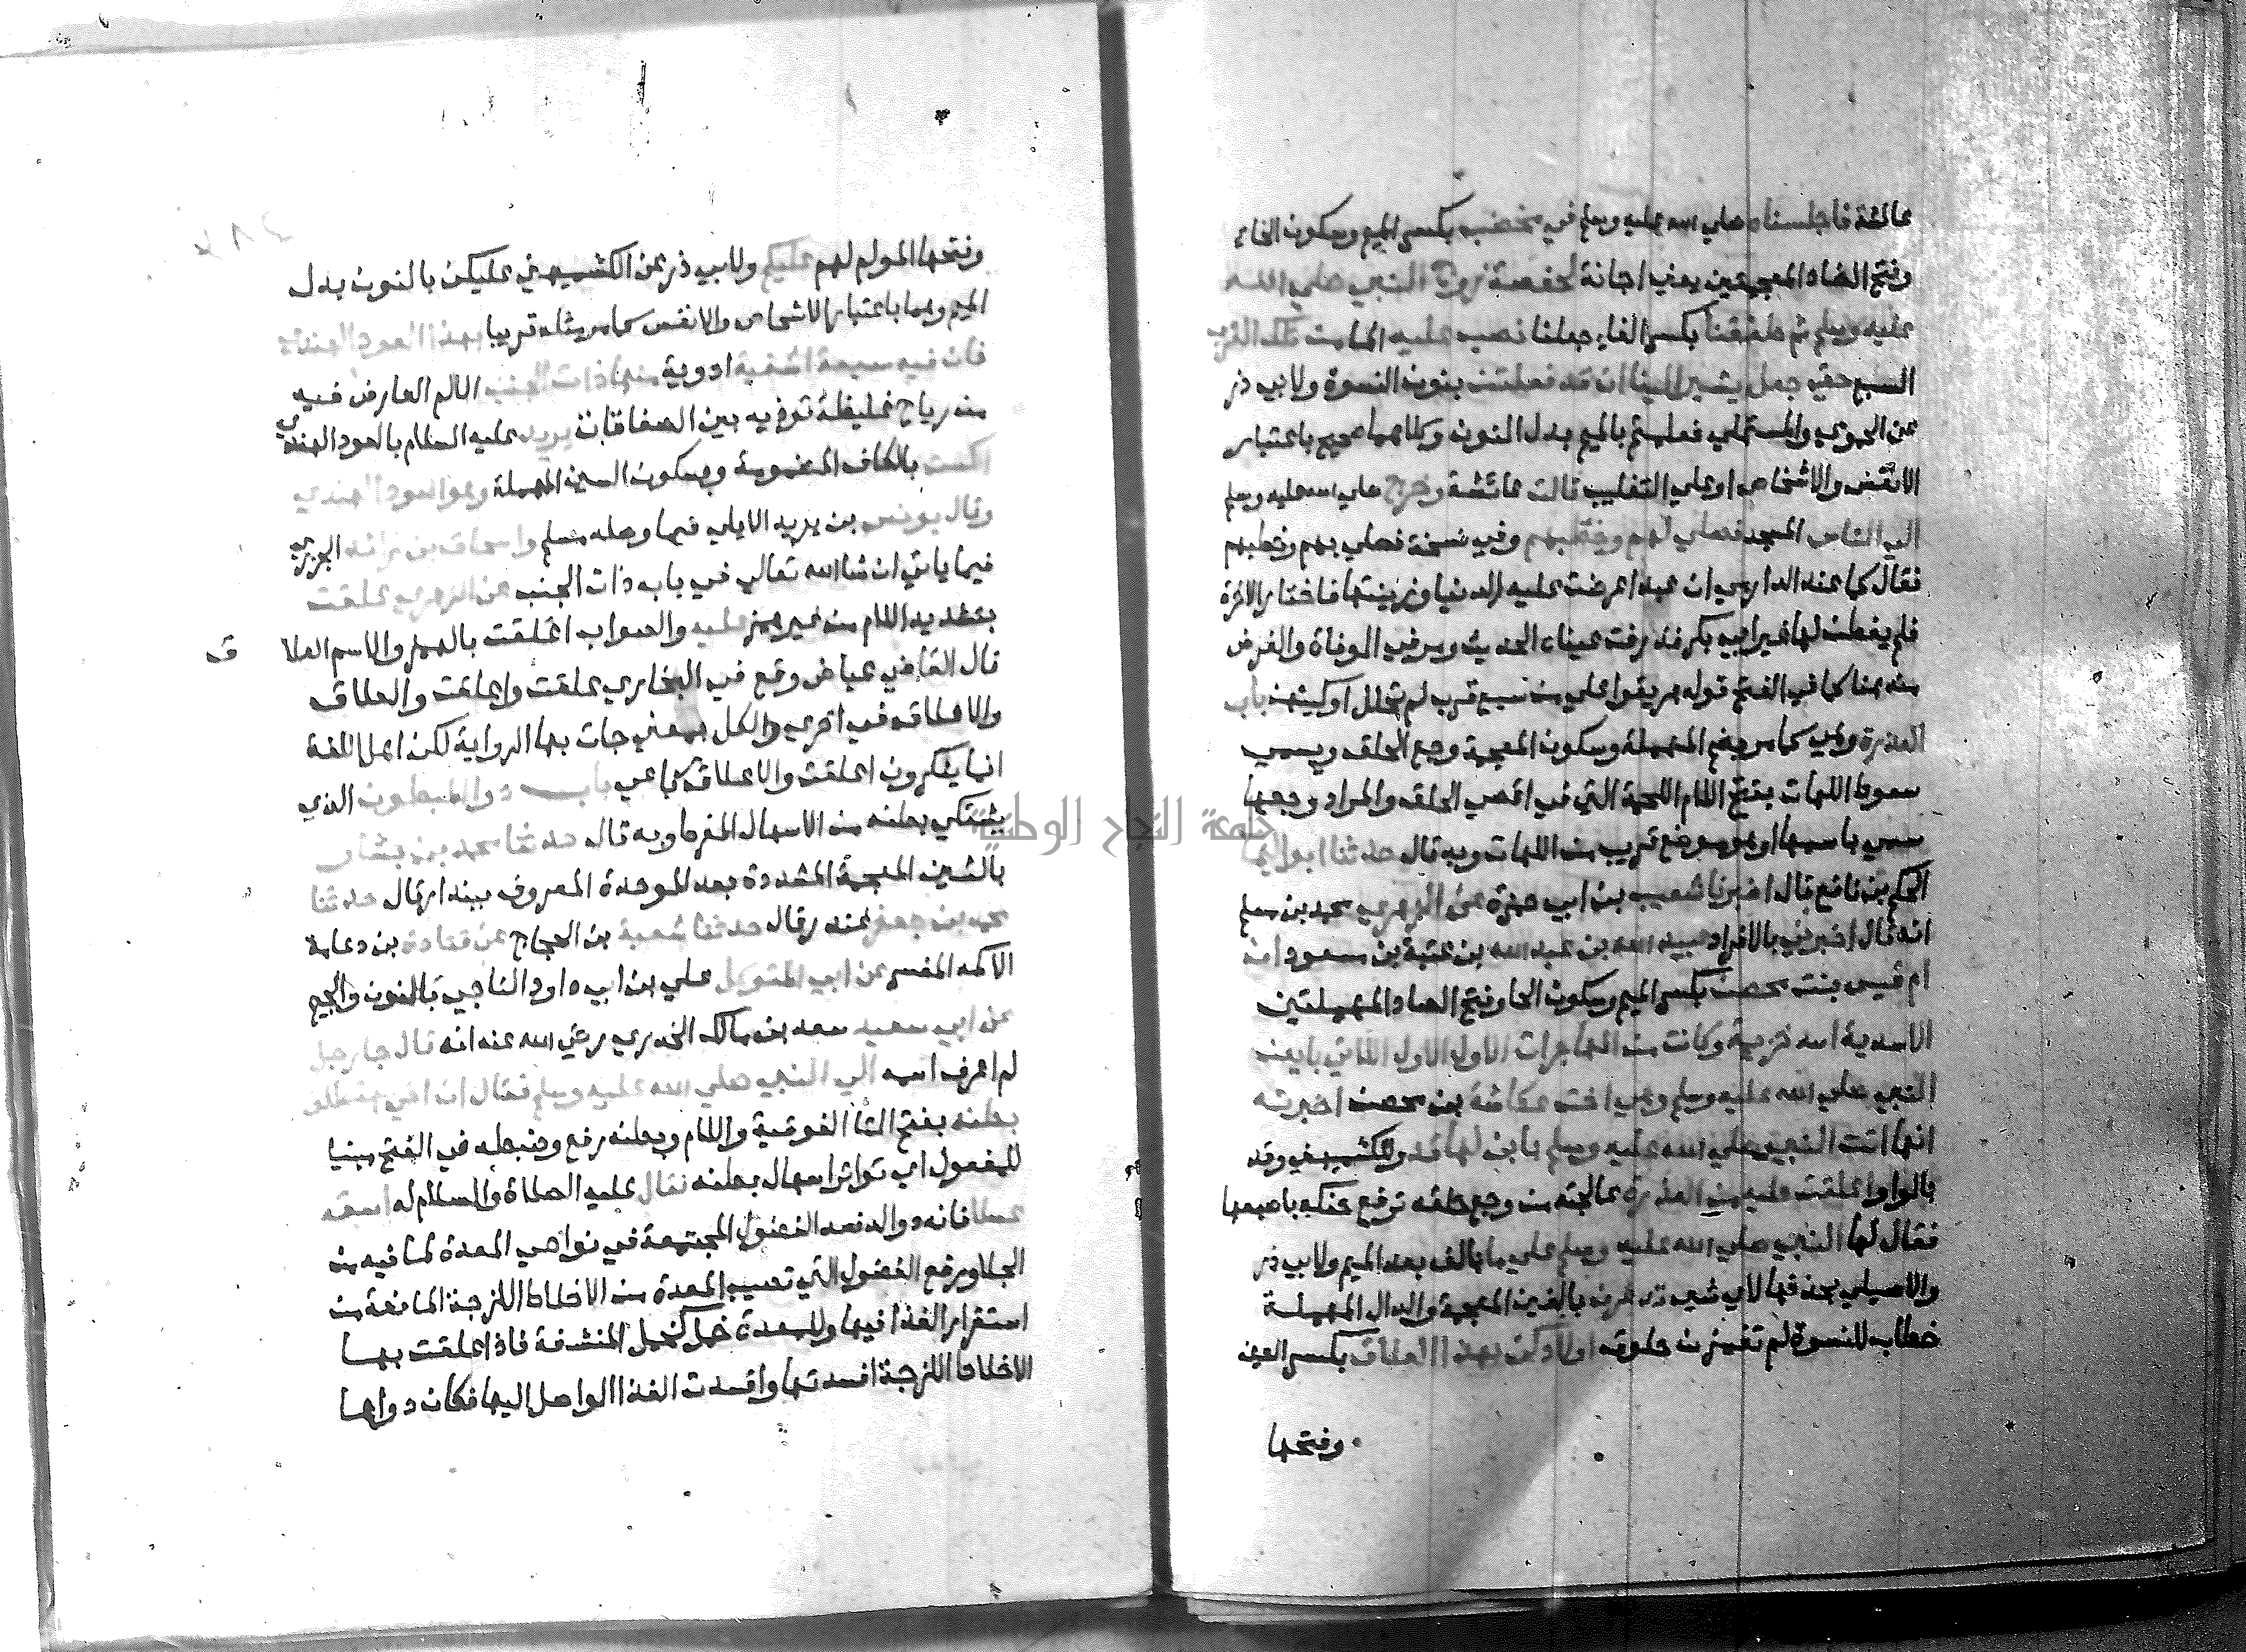 عائشة فاجلسناه صلي الله عليه وسلم في مخضب بكسر الميم وسكون الخاء
وفتح الضاد المعجمتين يعني اجانة لحفصة زوج النبي صلي الله
عليه وسلم ثم طفقنا بكسر الفاء جعلنا نصب عليه الما من تلك القرب
السبع حتي جعل يشير الينا ان قد فعلتن بنون النسوة ولابي ذر
عن الحموي والمستملي فعلتم بالميم بدل النون وكلاهما صحيح باعتبار
الانفس والاشخاص او علي التغليب قالت عائشة وخرج صلي الله عليه وسلم
الي الناس المسجد فصلي لهم وخطبهم وفي نسخة فصلي بهم وخطبهم
فقال كما عند الدارمي ان عبدا عرضت عليه الدنيا وزينتها فاختار الاخرة
فلم يفطن لها غير ابي بكر فذرفت عيناه الحديث ومر في الوفاة والغرض
منه هنا كما في الفتح قوله هريقوا علي من سبع قرب لم تحلل اوكيتهن باب
العذرة وهي كما مر بضم المهملة وسكون المعجمة وجع الحلق ويسمي
سعوط اللهات بفتح اللام اللحمة التي في اقصي الحلق والمراد وجعها
سمي باسمها او هو موضع قريب من اللهات وبه قال حدثنا ابو اليما
الحكم بن نافع قال اخبرنا شعيب بن ابي حمزة عن الزهري محمد بن مسلم
انه قال اخبرني بالافراد عبيد الله بن عبد الله بن عتبة بن مسعود ان
ام قيس بنت محصن بكسر الميم وسكون الحا وفتح الصاد المهملتين
الاسدية اسد خزيمة وكانت من المهاجرات الاول الاول اللاتي بايعن
النبي صلي الله عليه وسلم وهي اخت عكاشة بن محصن اخبرته
انها اتت النبي صلي الله عليه وسلم بابن لها قد وللكشميهني وقد
بالواو اعلقت عليه من العذرة عالجته من وجع حلقه ترفع حنكه باصبعها
فقال لها النبي صلي الله عليه وسلم علي ما بالف بعد الميم ولابي ذر
والاصيلي بحذفها لاي شي تدغرن بالغين المعجمة والدال المهملة
خطاب للنسوة لم تغمزن حلوق اولادكن بهذا العلاق بكسر العين
وفتحها
وفتحها المولم لهم عليكم ولابي ذر عن الكشميهني عليكن بالنون بدل
الميم وهما باعتبار الاشخاص والانفس كما مر مثله قريبا بهذا العود الهندي
فان فيه سبعة اشفية ادوية منها ذات الجنب الالم العارض فيه
من رياح غليظة توذيه بين الصفاقات يريد عليه السلام بالعود الهندي
الكست بالكاف المضمومة وبسكون السين المهملة وهو العود الهندي
وقال يونس بن يزيد الايلي فيما وصله مسلم واسحاق بن راشد الجزري
فيما ياتي ان شا الله تعالي في باب ذات الجنب عن الزهري علقت
بتشديد اللام من غير همز عليه والصواب اعلقت بالهمز والاسم العلا ق
قال القاضي عياض وقع في البخاري علقت واعلقت والعلاق
والاعلاق في اخري والكل بمعني جات بها الرواية لكن اهل اللغة
انما يذكرون اعلقت والاعلاق كما هي باب دوا المبطون الذي
يشتكي بطنه من الاسهال المفرط وبه قال حدثنا محمد بن بشار
بالشين المعجمة المشددة بعد الموحدة المعروف ببندار قال حدثنا
محمد بن جعفر غندر قال حدثنا شعبة بن الحجاج عن قتادة بن دعامة
الاكمه المفسر عن ابي المتوكل علي بن ابي داود الناجي بالنون والجيم
عن ابي سعيد سعد بن مالك الخدري رضي الله عنه انه قال جا رجل
لم اعرف اسمه الي النبي صلي الله عليه وسلم فقال ان اخي استطلق
بطنه بفتح التا الفوقية واللام وبطنه رفع وضبطه في الفتح مبنيا
للمفعول اي تواتر اسهال بطنه فقال عليه الصلاة والسلام له اسقه
عسلا فانه دوا لدفعه الفضول المجتمعة في نواحي المعدة لما فيه من
الجلا ورفع الفضول التي تصيب المعدة من الاخلاط اللزجة المانعة من
استقرار الغذا فيها وللمعدة خمل كخمل المنشفة فاذا علقت بها
الاخلاط اللزجة افسدتها وافسدت الغذا الواصل اليها فكان دواها
جامعة النجاح الوطنية